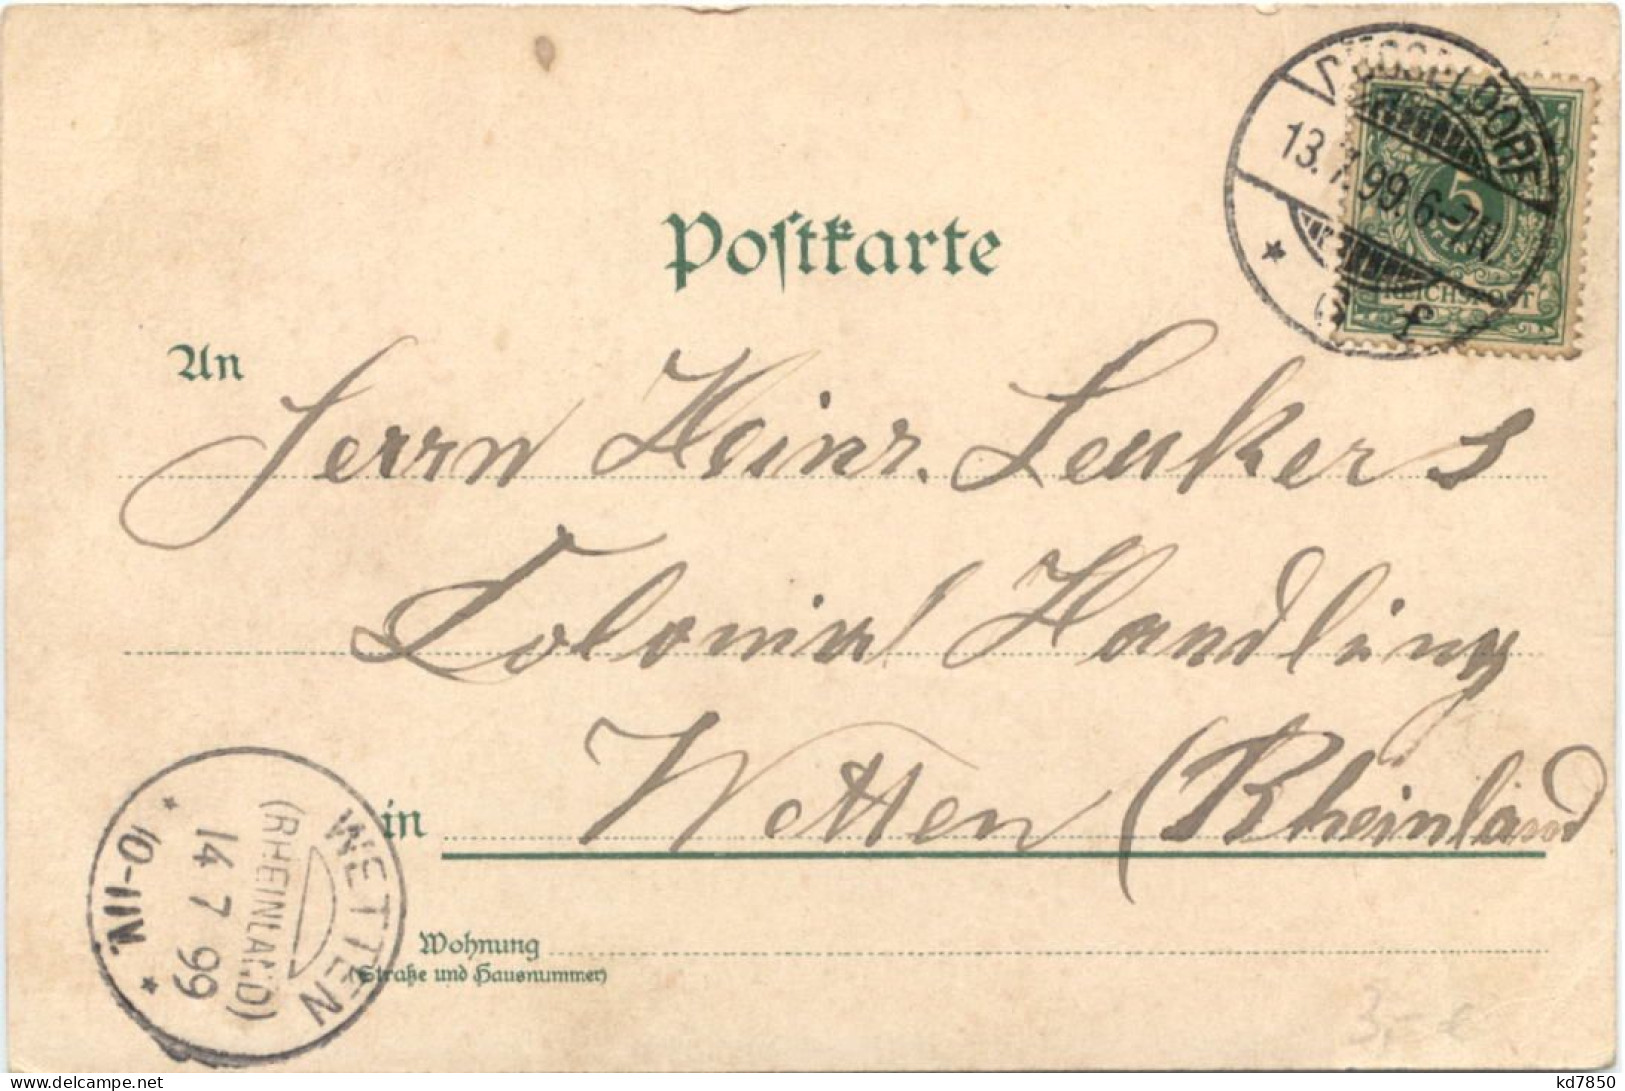 DÜSSELDORF
13.7.99. 6-7N
* 3 f
5
REICHSPOST
Postkarte
An
Herrn Heinr. Leukers
Colonial Handlung
in Wetten (Rheinland
WETTEN
(RHEINLAND)
14 7 99
* 10-11V. *
Wohnung
(Straße und Hausnummer)
3,- €
delcampe.net
kd7850